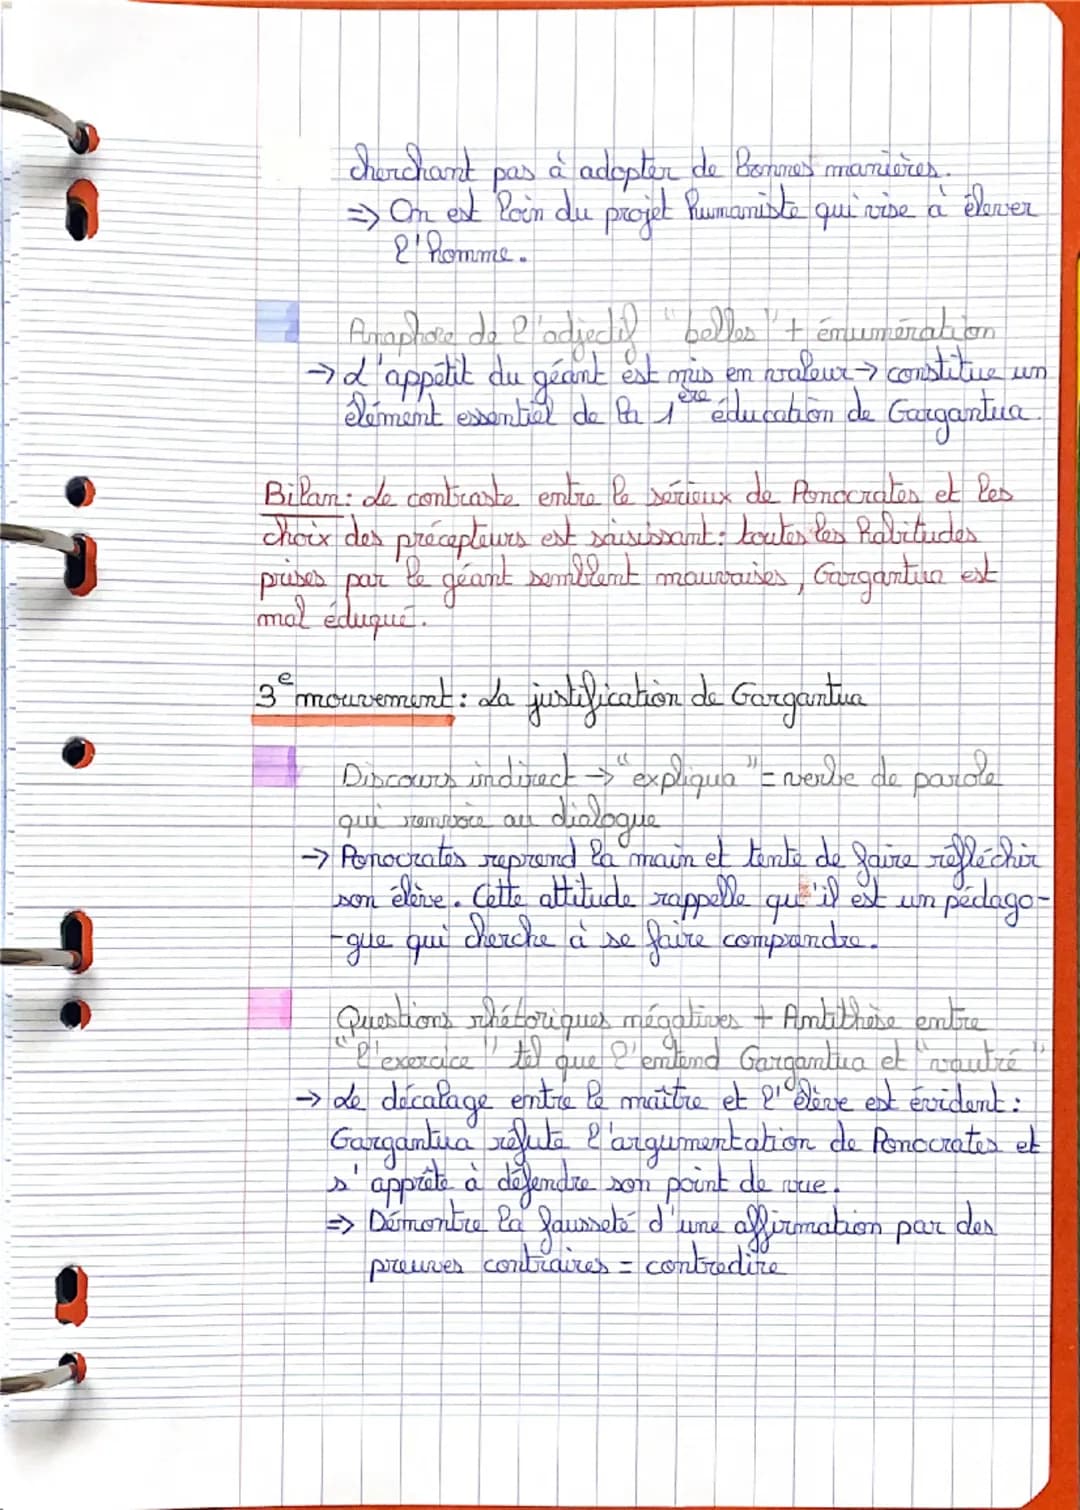 cherchant pas à adopter de bonnes manières.
=> On est loin du projet humaniste qui vise à élever
l'homme.
Anaphore de l'adjectif "belles" + énumération
→ L'appétit du géant est mis en valeur → constitue un
élément essentiel de la 1ère éducation de Gargantua.
Bilan: Le contraste entre le sérieux de Ponocrates et les
choix des précepteurs est saisissant: toutes les habitudes
prises par le géant semblent mauvaises, Gargantua est
mal éduqué.
3e mouvement: La justification de Gargantua
Discours indirect → "expliqua" = verbe de parole
qui renvoie au dialogue
→ Ponocrates reprend la main et tente de faire réfléchir
son élève. Cette attitude rappelle qu'il est un pédago-
-gue qui cherche à se faire comprendre.
Questions rhétoriques négatives + Antithèse entre
"l'exercice" tel que l'entend Gargantua et "vautré"
→ Le décalage entre le maître et l'élève est évident:
Gargantua réfute l'argumentation de Ponocrates et
s'apprête à défendre son point de vue.
=> Démontre la fausseté d'une affirmation par des
preuves contraires = contredire